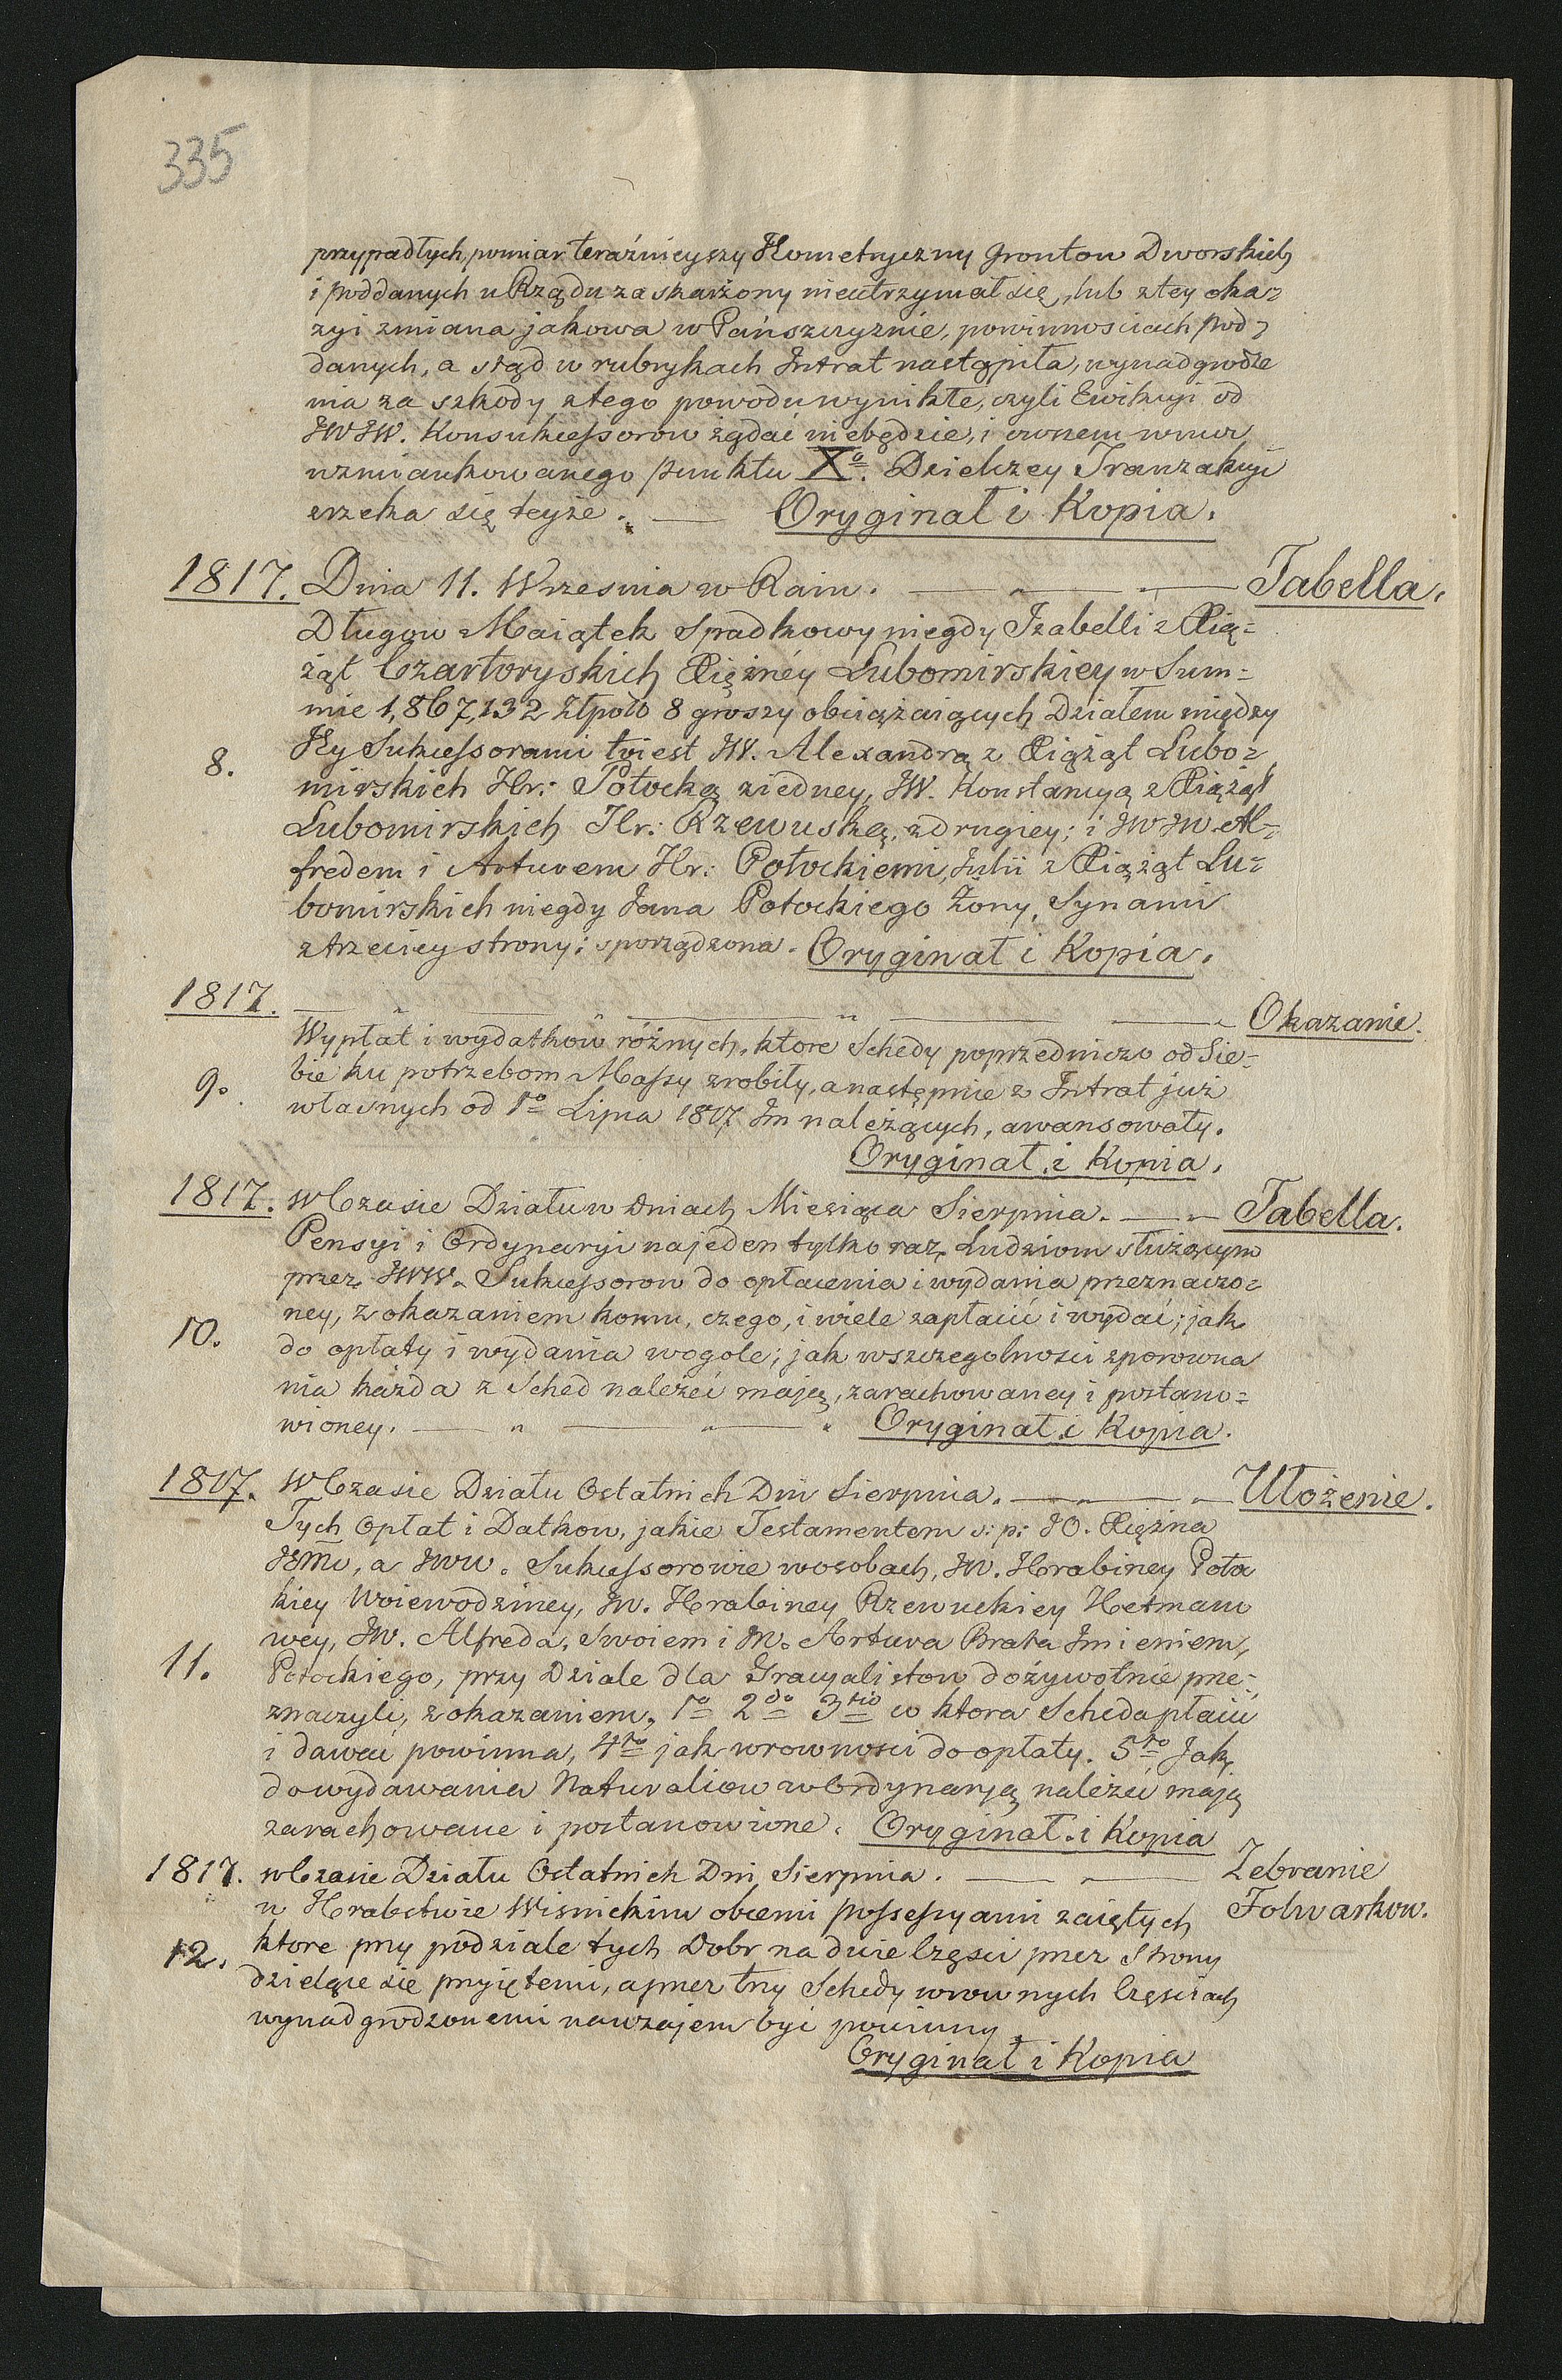 335
przypadłych, pomiar teraźnieyszy Ikometryczny Grontow Dworskich
i poddanych u Rządu zaskarżony nieutrzymał się, lub z tey oka=
zyi zmiana jakowa w Pańszczyznie, powinnosciach pod=
danych, a stąd w rubrykach Intrat nastąpiła, wynadgrodze
nia za szkody z tego powodu wynikłe, czyli Ewikcyi od
JWJW. Konsukcessorow żądać niebędzie, i owszem wmoc
wzmiankowanego punktu Xo. Dzielczey Tranzakcyi
zrzeka się teyże. — Oryginał i Kopia.
1817. Dnia 11. Wrzesnia w Rain. — Tabella.
Długow Maiątek Spadkowy niegdy Izabelli z Xią=
żąt Czartoryskich Xiężnéy Lubomirskiey w Sum=
mie 1,867,132 Złpolo 8 groszy obciążaiących Działem między
8. Jey Sukcessorami to iest JW. Alexandrą z Xiążąt Lubo=
mirskich Hr: Potocką ziedney, JW. Konstancyą z Xiążąt
Lubomirskich Hr: Rzewuską, zdrugiey; i JWJW. Al=
fredem i Arturem Hr: Potockiemi, Julii z Xiążąt Lu=
bomirskich niegdy Jana Potockiego Żony, Synami
z trzeciey strony; sporządzona. Oryginał i Kopia.
1817. — Okazanie.
Wypłat i wydatkow różnych, ktore Schedy poprzedniczo od Sie=
9. bie ku potrzebom Massy zrobiły, a następnie z Intrat już
własnych od 1o Lipca 1817 Im należących, awansowały.
Oryginał i Kopia.
1817. w Czasie Działu w Dniach Miesiąca Sierpnia. — Tabella.
Pensyi i Ordynaryi na jeden tylko raz, Ludziom służącym
przez JWW. Sukcessorow do opłacenia i wydania przeznaczo=
ney, z okazaniem komu, czego, i wiele zapłacić i wydać; jak
10. do opłaty i wydania wogole; jak wszczegolnosci zporowna
nia każda z Sched należeć mają, zarachowaney i postano=
wioney. — Oryginał i Kopia.
1817. W Czasie Działu Ostatnich Dni Sierpnia. — Ułożenie.
Tych Opłat i Datkow, jakie Testamentem s: p: JO. Xiężna
Jmć, a JWW. Sukcessorowie wosobach, JW. Hrabiney Poto
kiey Woiewodziney, JW. Hrabiney Rzewuckiey Hetmano
wey, JW. Alfreda, Swoiem i JW. Artura Brata Imieniem,
11. Potockiego, przy Dziale dla Gracyalistow dożywotnie prze=
znaczyli, z okazaniem, 1o 2do 3tio co ktora Scheda płacić
i dawać powinna, 4to jak wrownosci do opłaty. 5to Jak
do wydawania Naturaliow w Ordynarją należeć mają
zarachowane i postanowione. Oryginał i Kopia
1817. w Czasie Działu Ostatnich Dni Sierpnia. — Zebranie
w Hrabstwie Wisnickim obcemi possessyami zaiętych Folwarkow.
12. ktore przy podziale tych Dobr na dwie Części przez Strony
dzielące się przyiętemi, a przez trzy Schedy wrownych Częściach
wynadgrodzonemi nawzajem być powinny
Oryginał i Kopia